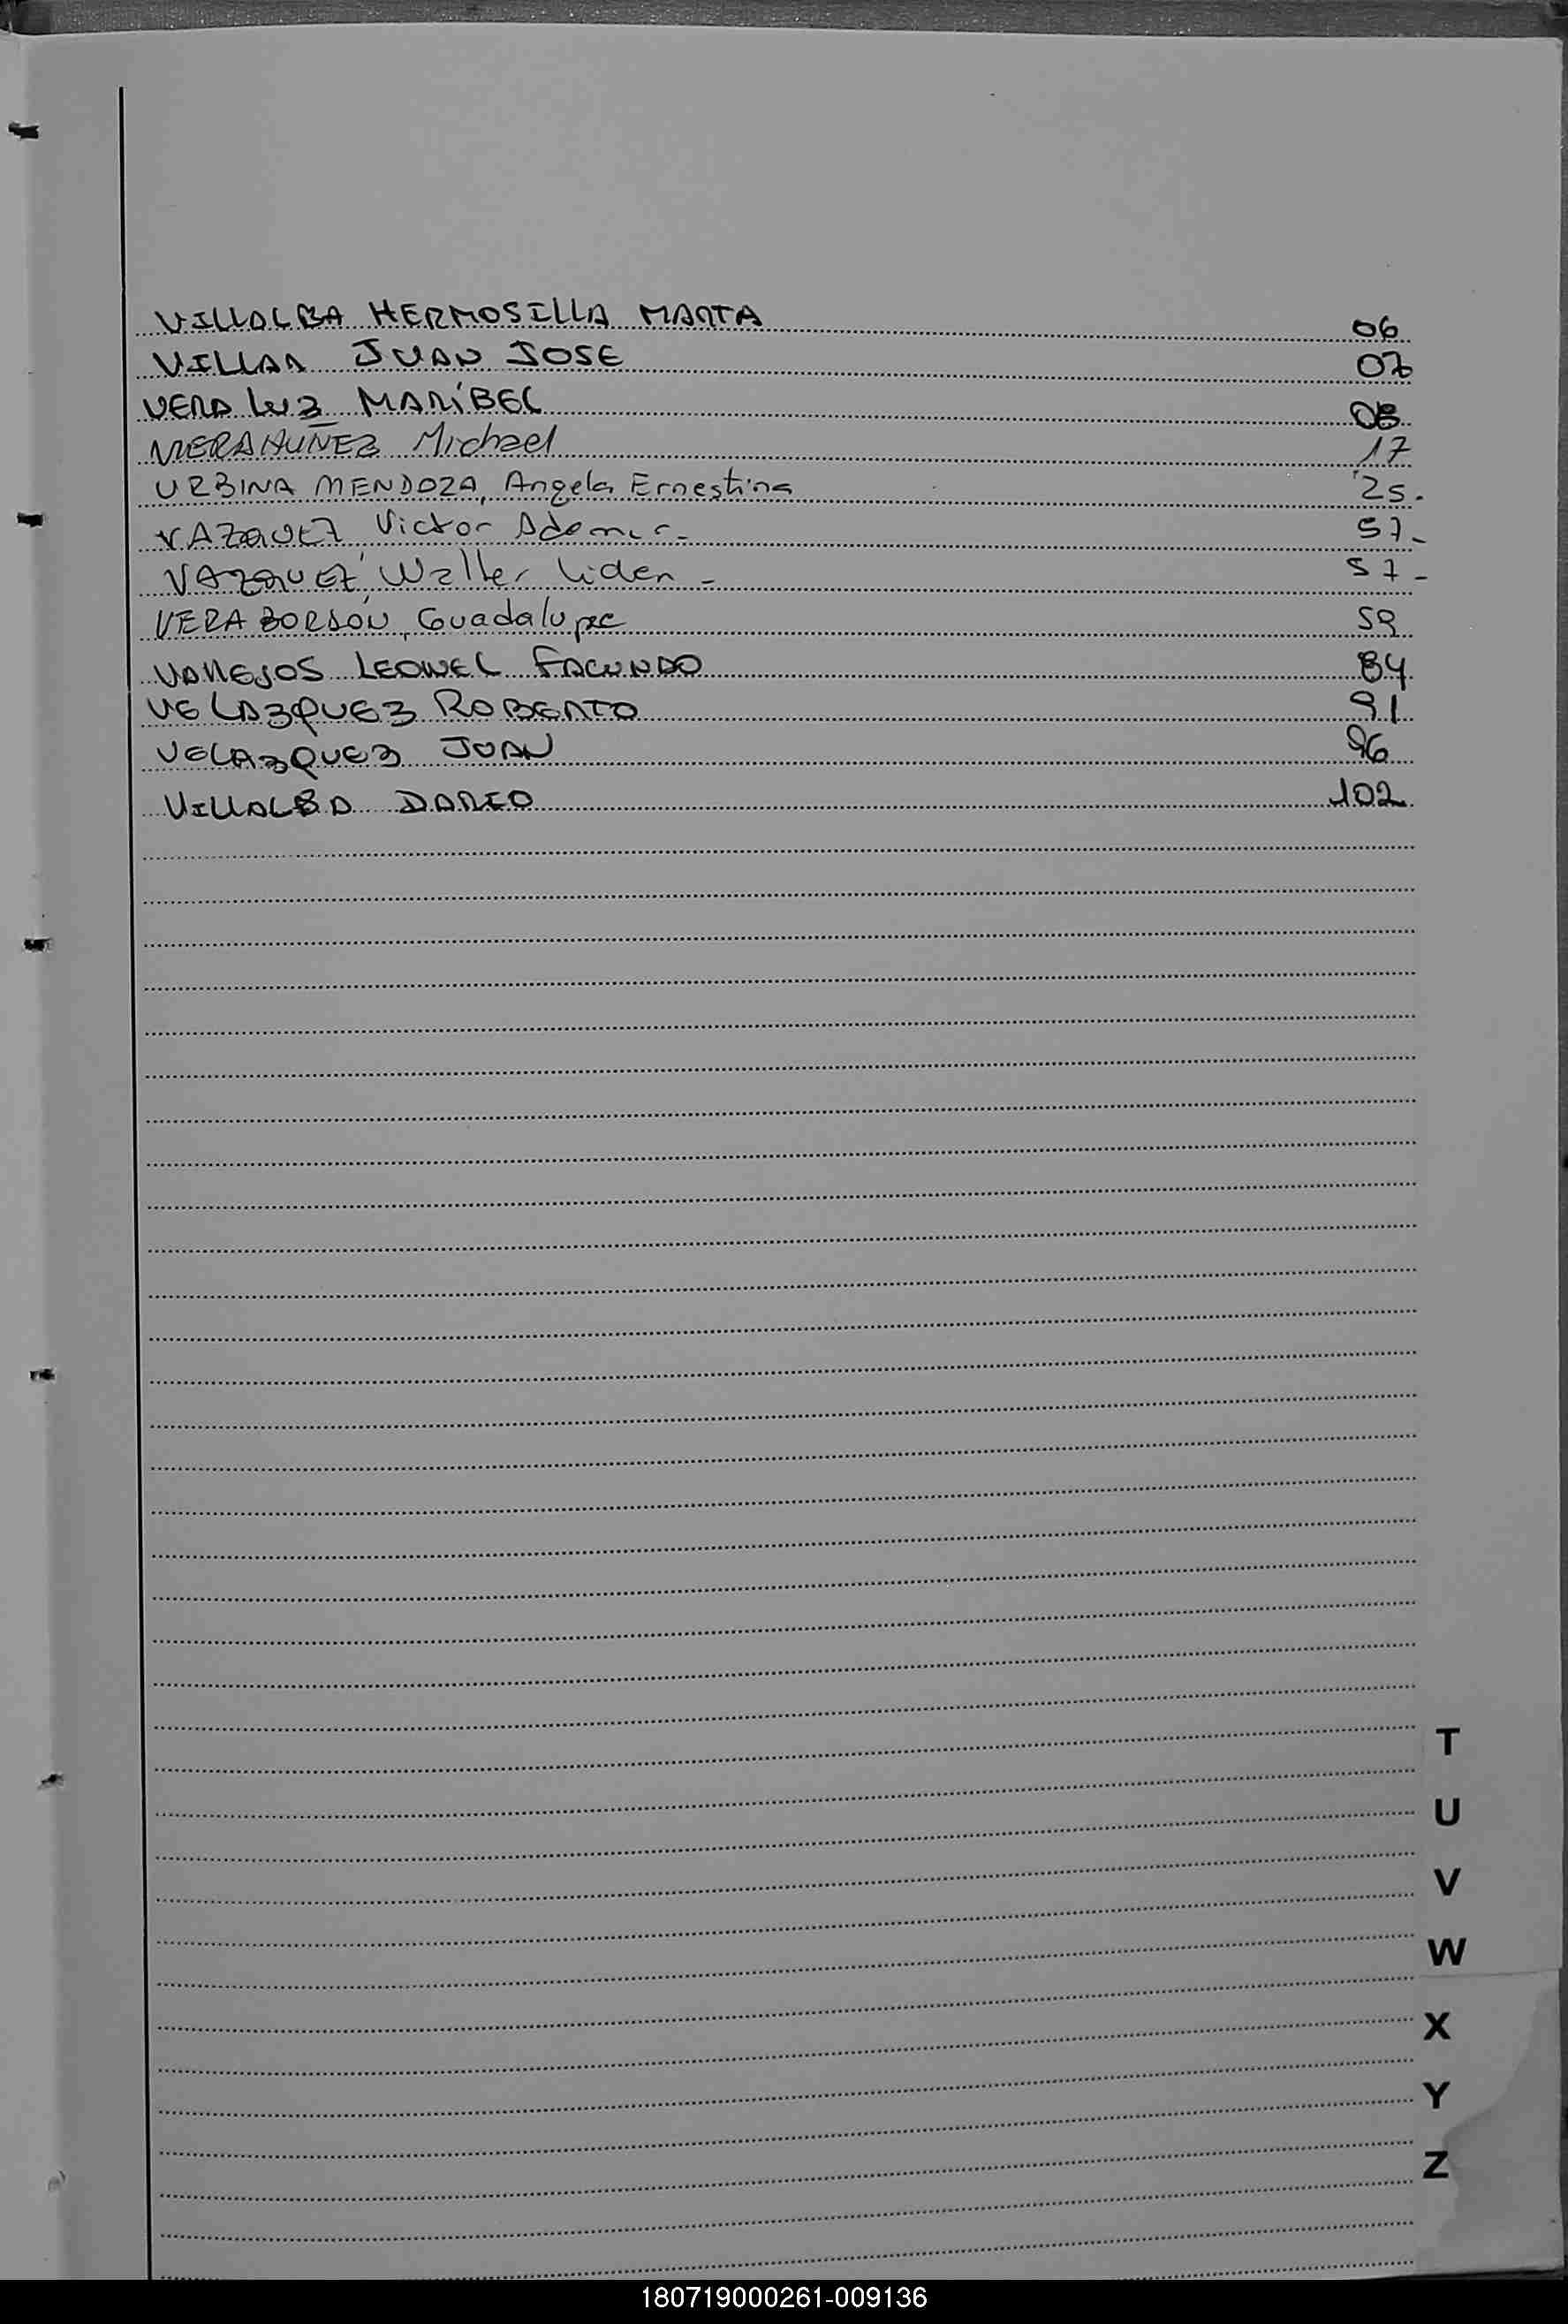 VILLALBA HERMOSILLA MARTA 06
VILLAR JUAN JOSE 07
VERA LUZ MARÍBEL 08
VIERA NUÑEZ Michael 17
URBINA MENDOZA, Angela Ernestina 25.
VAZQUEZ Victor Ademir - 57 -
VAZQUEZ, Walter Liden - 57 -
VERA BORDÓN, Guadalupe 59
VALLEJOS LEONEL FACUNDO 84
VELAZQUEZ ROBERTO 91
VELAZQUEZ JUAN 96
VILLALBA DARIO 102
T
U
V
W
X
Y
Z
180719000261-009136